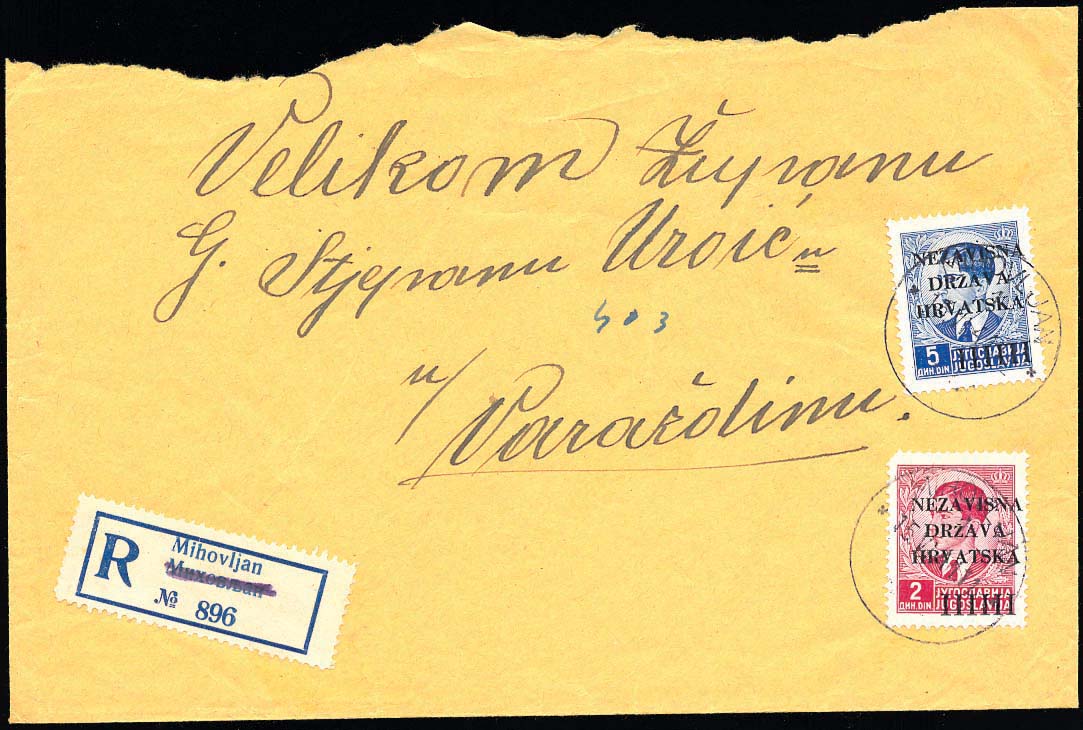 Velikom Županu
G. Stjepanu Uroić u
503
u/ Varaždinu.
NEZAVISNA
DRŽAVA
HRVATSKA
5 ЈУГОСЛАВИЈА
ДИН. DIN JUGOSLAVIJA
NEZAVISNA
DRŽAVA
HRVATSKA
2 ЈУГОСЛАВИЈА
ДИН. DIN JUGOSLAVIJA
R
Mihovljan
Миховљан
№ 896